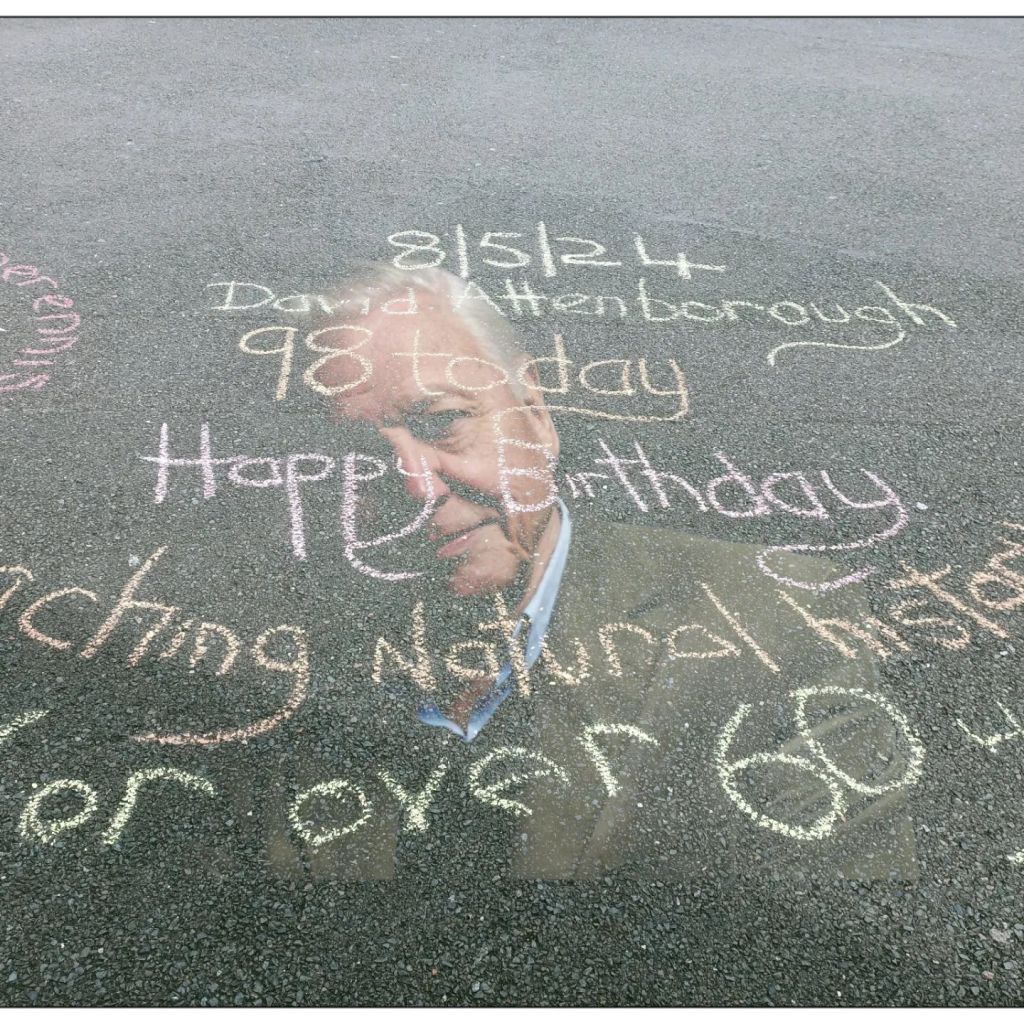 8/5/24
David Attenborough
98 today
Happy Birthday.
Natural
or over 60